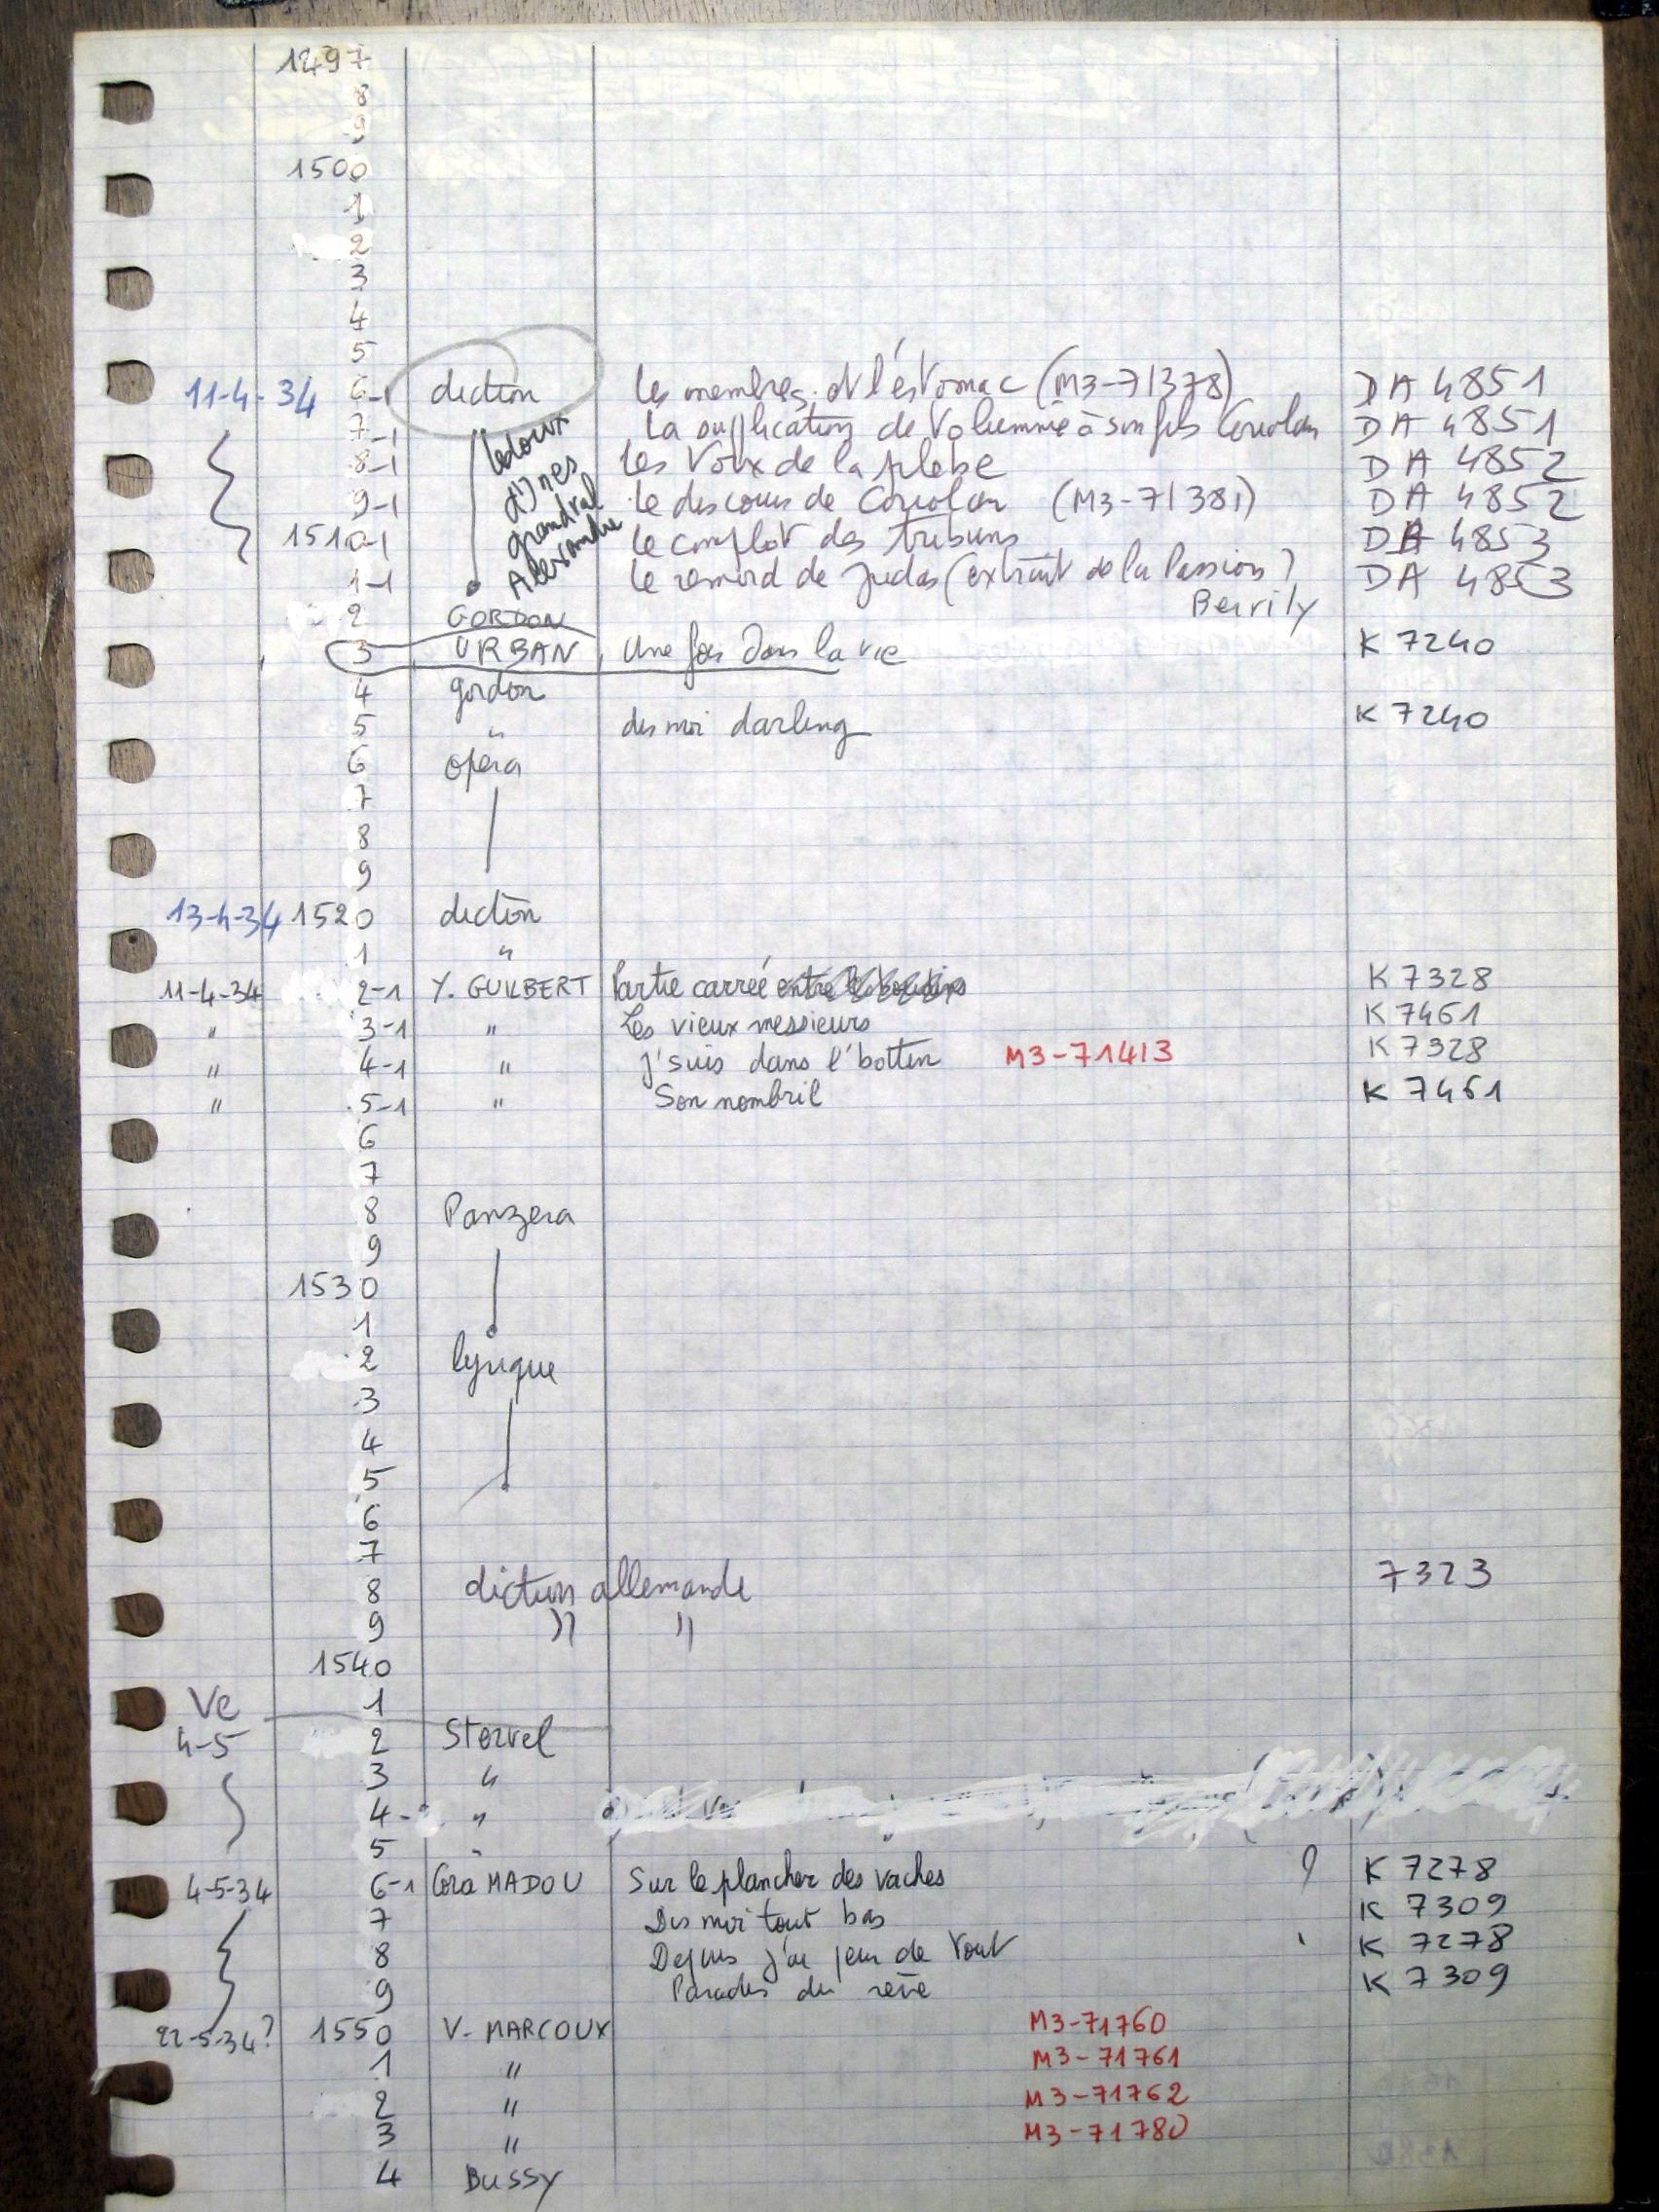 1497
8
9
1500
1
2
3
4
5
11-4-34 6-1 diction Les membres et l'estomac (M3-71378) DA 4851
7-1 " Ledoux La supplication de Volumnie à son fils Coriolan DA 4851
8-1 d'Ines Les Voix de la plebe DA 4852
9-1 grandval Le discours de Coriolan (M3-71381) DA 4852
1510-1 Alexandre Le complot des tribuns DA 4853
1-1 Le remord de Judas (extrait de la Passion ? DA 4853
2 GORDON
3 URBAN Une fois dans la vie K 7240
4 gordon
5 " dis moi darling K 7240
6 opera
7
8
9
13-4-34 1520 diction
1 "
11-4-34 2-1 Y. GUILBERT Partie carrée entre K 7328
" 3-1 " Les vieux messieurs K 7461
" 4-1 " J'suis dans l'bottin M3-71413 K 7328
" 5-1 " Son nombril K 7461
6
7
8 Panzera
9
1530
1
2 lyrique
3
4
5
6
7
8 diction allemande 7323
9 " "
1540
Ve 1
4-5 2 Storvel
3 "
4- "
5 "
4-5-34 6-1 Cora MADOU Sur le plancher des vaches ? K 7278
7 Dis moi tout bas K 7309
8 Depuis j'ai peur de tout K 7278
9 Paradis du rêve K 7309
22-5-34? 1550 V. MARCOUX M3-71760
1 " M3-71761
2 " M3-71762
3 " M3-71780
4 BUSSY